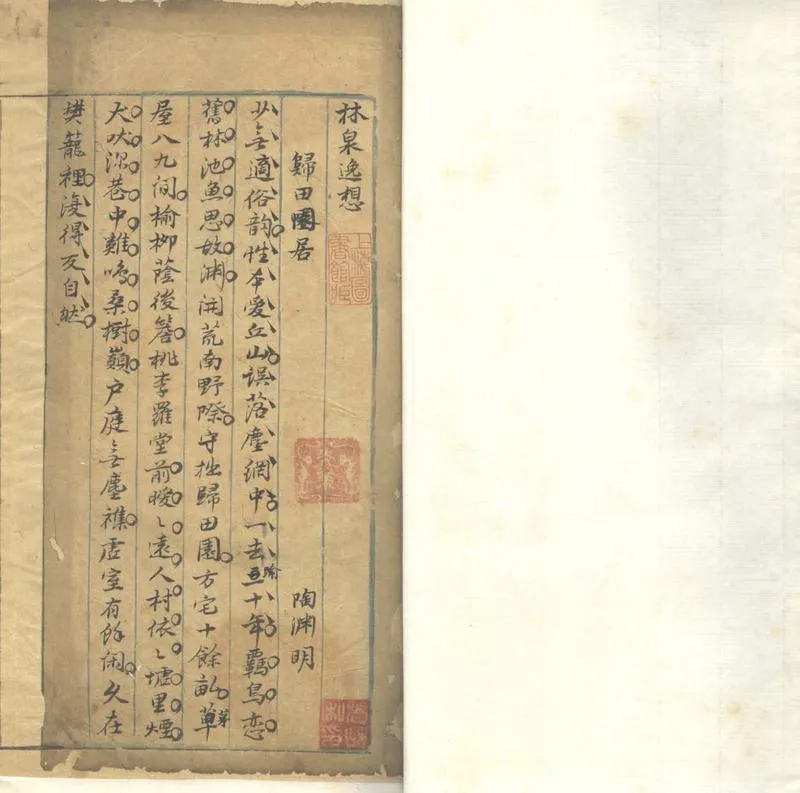 林泉逸想
上海圖書館藏
歸田園居 陶渊明
少無適俗韵性本愛丘山誤落塵網中一去五十年羈鳥恋
舊林池魚思故渊開荒南野際守拙歸田園方宅十餘畝草
茅
屋八九间榆柳蔭後簷桃李羅堂前曖〻遠人村依〻墟里煙
犬吠深巷中雞鳴桑樹巔户庭無塵襍虛室有餘闲久在
樊籠裡復得反自然